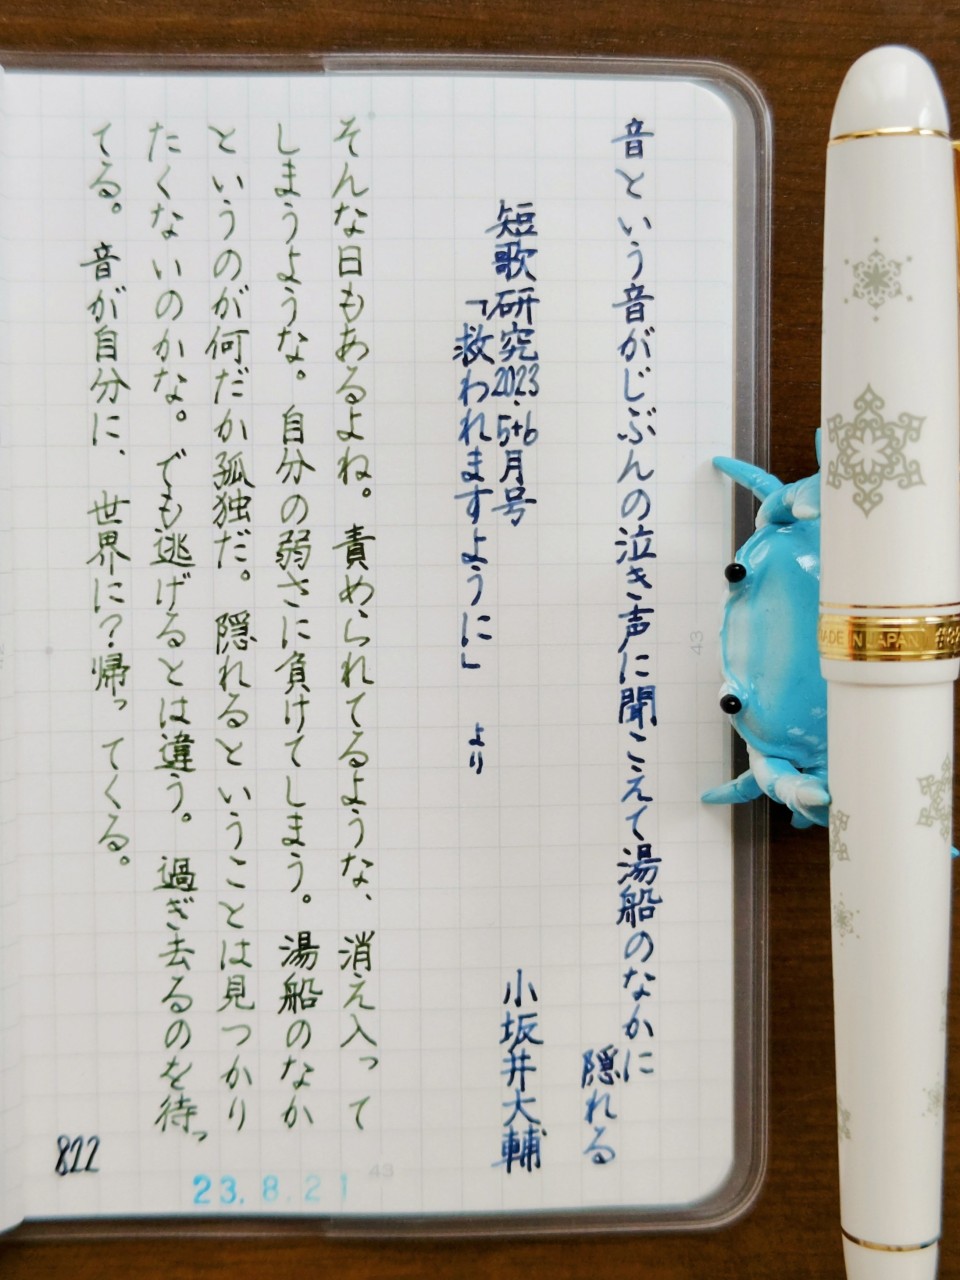 音という音がじぶんの泣き声に聞こえて湯船のなかに
隠れる
短歌研究2023.5+6月号
「救われますように」 より
小坂井大輔
そんな日もあるよね。責められてるような、消え入って
しまうような。自分の弱さに負けてしまう。湯船のなか
というのが何だか孤独だ。隠れるということは見つかり
たくないのかな。でも逃げるとは違う。過ぎ去るのを待っ
てる。音が自分に、世界に?帰ってくる。
822
23.8.21
43
43
MADE IN JAPAN